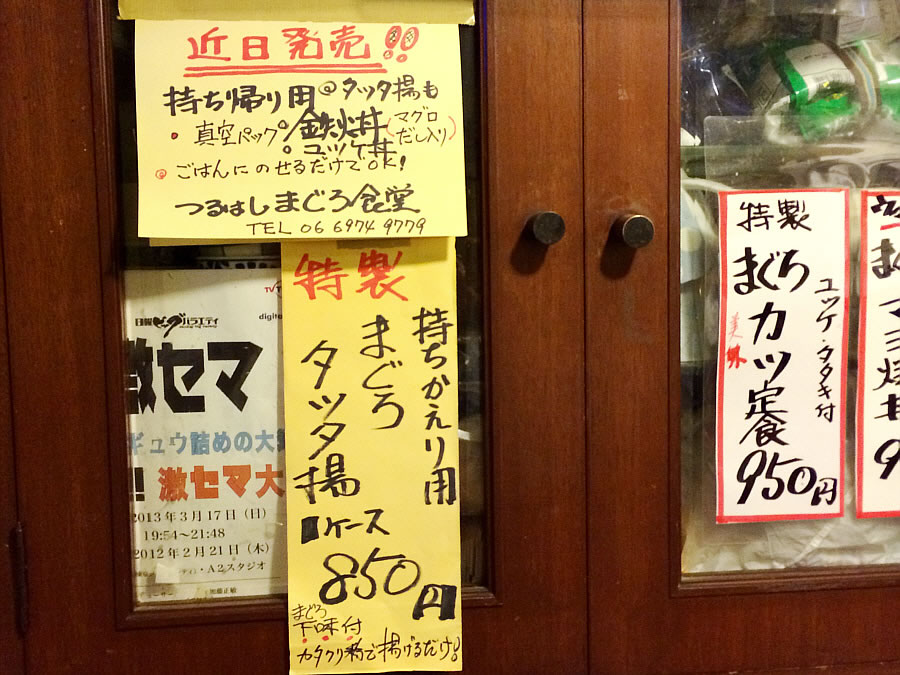 近日発売!!
持ち帰り用 @タツタ揚も
・真空パック 鉄火丼(マグロだし入り)
。ユッケ丼
@ごはんにのせるだけでOK!
つるはしまぐろ食堂
TEL 06 6974 9779
特製
持ちかえり用
まぐろ
タツタ揚
1ケース
850円
まぐろ
下味付
カタクリ粉で揚げるだけ!!
日曜ビッグバラエティ
digite
激セマ
ギュウ詰めの大
!激セマ大
2013年3月17日(日)
19:54~21:48
2012年2月21日(木)
・A2スタジオ
特製
まぐろ
カツ定食
ユッケ・タタキ付
美味
950円
マヨ焼丼
9